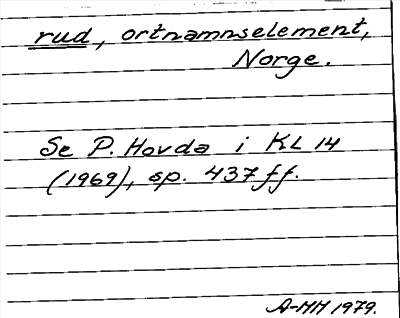 rud, ortnamnselement,
Norge.
Se P. Hovda i KL 14
(1969), sp. 437 ff.
A-MH 1979.